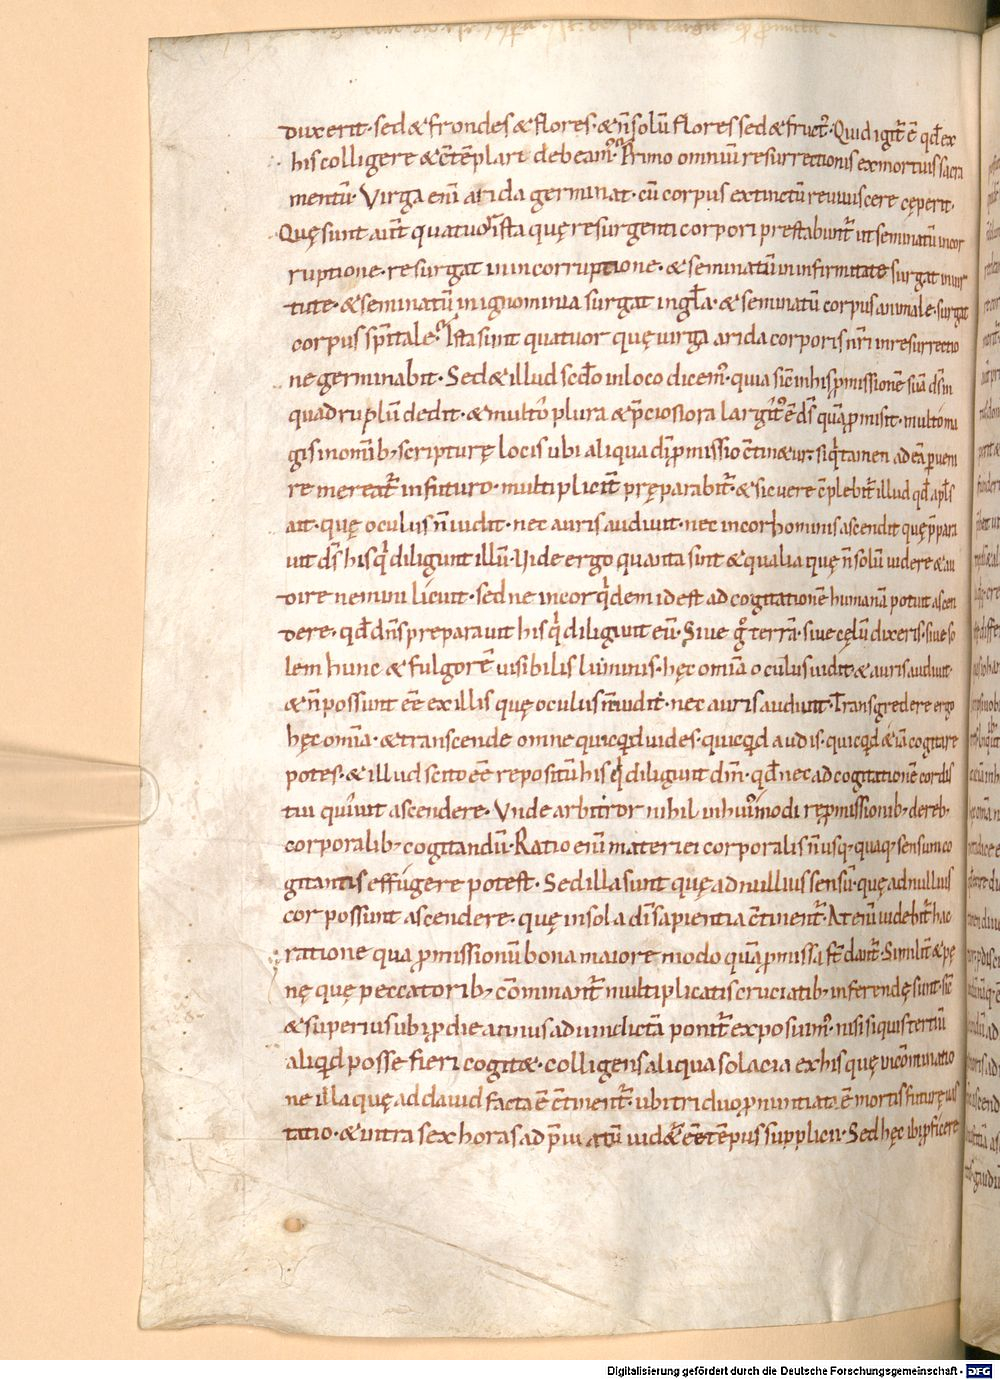 duxerit· sed & frondes & flores· & n̄ solū flores sed & fruct᷒· Quid igit᷑ ē qđ ex
his colligere & c̄tēplari debeam᷒· Primo omniū resurrectionis ex mortuis sacra
mentū· Virga enī arida germinat· cū corpus extinctū reuiuiscere cęperit·
Quę sunt aūt quatuor ista quę resurgenti corpori prestabunt᷑ ut seminatū in cor
ruptione· resurgat in incorruptione· & seminatū in infirmitate surgat in uir
tute· & seminatū in ignominia surgat in gł̄a· & seminatū corpus animale· surgat
corpus sp̄itale· Ista sunt quatuor quę uirga arida corporis nr̄i in resurrectio
ne germinabit· Sed & illud scd̄o in loco dicem᷒· quia sic̄ in his ꝓmissionē suā d̄s in
quadruplū dedit· & multo plura & p̄ciosiora largit᷒ ē d̄s quā ꝓmisit· multo ma
gis in omīb; scripturę locis ubi aliqua dī ꝓmissio c̄tin&ur· siq̇s tamen ad eā ꝑueni
re mereat᷑ in futuro· multiplicit̄ pręparabit᷑· & sic uere c̄plebit᷑ illud qđ apl̄s
ait· quę oculus n̄ uidit· nec auris audiuit· nec in cor hominis ascendit quę p̄para
uit d̄s his q̇ diligunt illū· Uide ergo quanta sint & qualia quę n̄ solū uidere & au
dire nemini licuit· sed ne in cor q̇dem id est ad cogitationē humanā potuit ascen
dere· qđ dn̄s preparauit his q̇ diligunt eū· Siue ḡ terrā· siue cęlū dixeris· siue so
lem hunc & fulgorē uisibilis luminis· hęc omīa oculus uidit & auris audiuit·
& n̄ possunt eē ex illis quę oculus n̄ uidit· nec auris audiuit· Transgredere ergo
hęc omīa· & transcende omne quicq̇d uides· quicq̇d audis· quicq̇d & iā cogitare
potes· & illud scito eē repositū his q̇ diligunt dm̄· qđ nec ad cogitationē cordis
tui quiuit ascendere· Vnde arbitror nihil in hui᷒modi repmissionib; de reb;
corporalib; cogitandū· Ratio enī materiei corporalis n̄ usq; quaq; sensum co
gitantis effugere potest· Sed illa sunt quę ad nullius sensū· quę ad nullius
cor possunt ascendere· quę in sola dī sapientia c̄tinent᷑· At enī uidebit᷑ hac
ratione qua ꝓmissionū bona maiore modo quā ꝓmissa st̄ dant᷑· Similit̄ & pę
nę quę peccatorib; cōminant᷑ multiplicatis cruciatib; inferendę sunt· sic̄
& superius ubi ꝓ die annus ad uindictā ponit᷑ exposuim᷒· nisi siquis tertiū
aliq̇d posse fieri cogit&· colligens aliqua solacia ex his quę in cōminatio
ne illa quę ad dauid facta ē c̄tinent᷑· ubi triduo pronuntiata ē mortis futurę uas
tatio· & intra sex horas ad eē tēpus supplicii· Sed hęc ibi ꝓficere
Digitalisierung gefördert durch die Deutsche Forschungsgemeinschaft - DFG